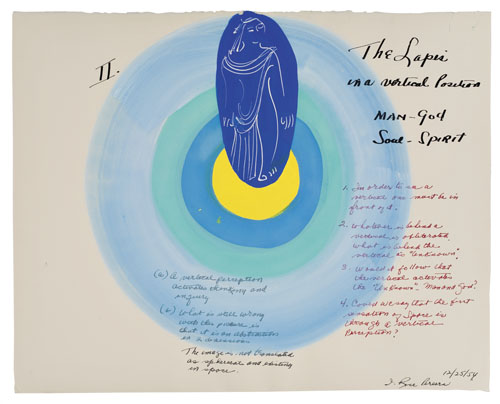 II.
The Lapis
in a vertical Position
MAN-God
Soul-Spirit
1. In order to see a
vertical one must be in
front of it.
2. Whatever is behind a
vertical is obliterated,
what is behind the
vertical is "unknown".
3. Would it follow that
the vertical activates
the "Unknown". "Man and God"?
4. Could we say that the first
sensation of Space is
through a "vertical
Perception"?
(a) A vertical perception
activates thinking and
inquiry
(b) What is still wrong
with this picture is
that it is an abstraction
in 2 dimensions
The image is not translated
as spherical and existing
in space.
12/25/59
I. Rice Pereira